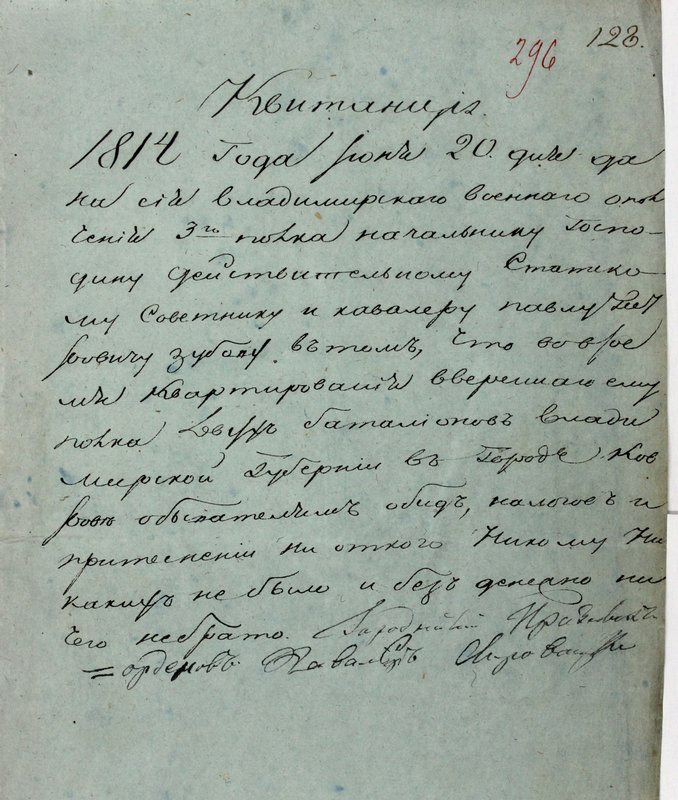 296 128.
Квитанция
1814 Года Июня 20. дня да
на сия владимирскаго военнаго опол
чения 3го полка начальнику Госпо-
дину действительному Статско-
му Советнику и кавалеру павлу
зубову в томъ, что вовре
мя квартирования ввереннаго ему
полка Двухъ баталионовъ влади
мирской Губернии въ Городе Ков
рове обывателямъ обидъ, налоговъ и
притеснении ни откого Никому Ни
какихъ не было и безъ денежно ни
чего небрато. Городничий
= орденовъ Кавалеръ